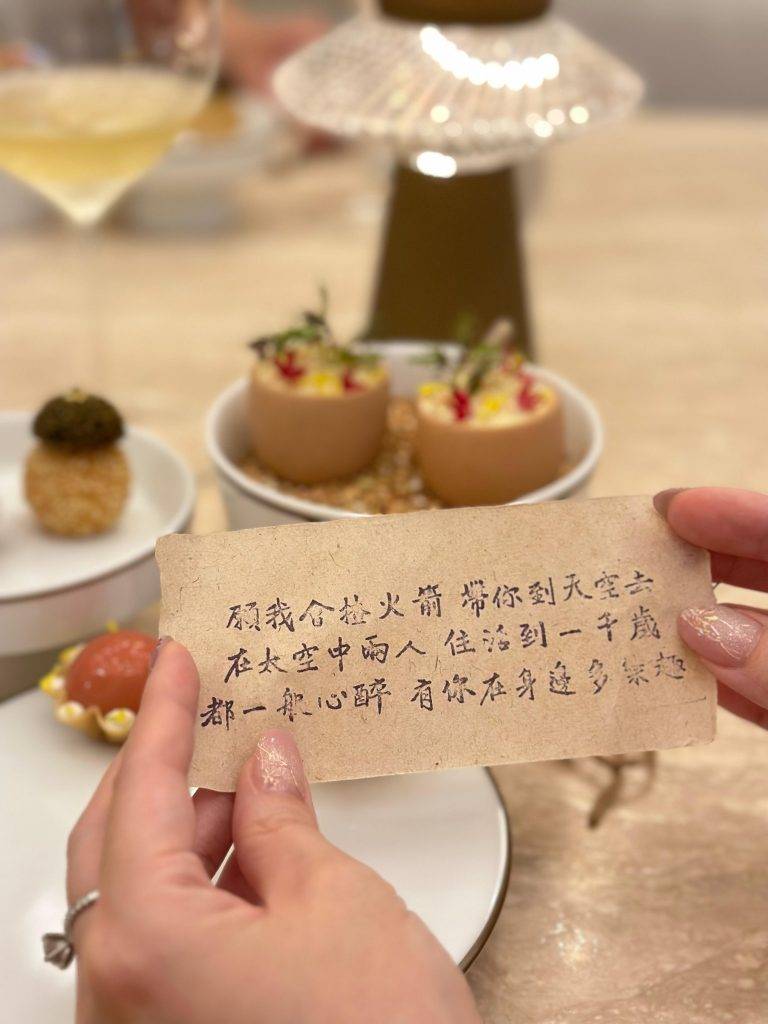 願我会揸火箭 帶你到天空去
在太空中兩人 住活到一千歲
都一般心醉 有你在身邊多樂趣